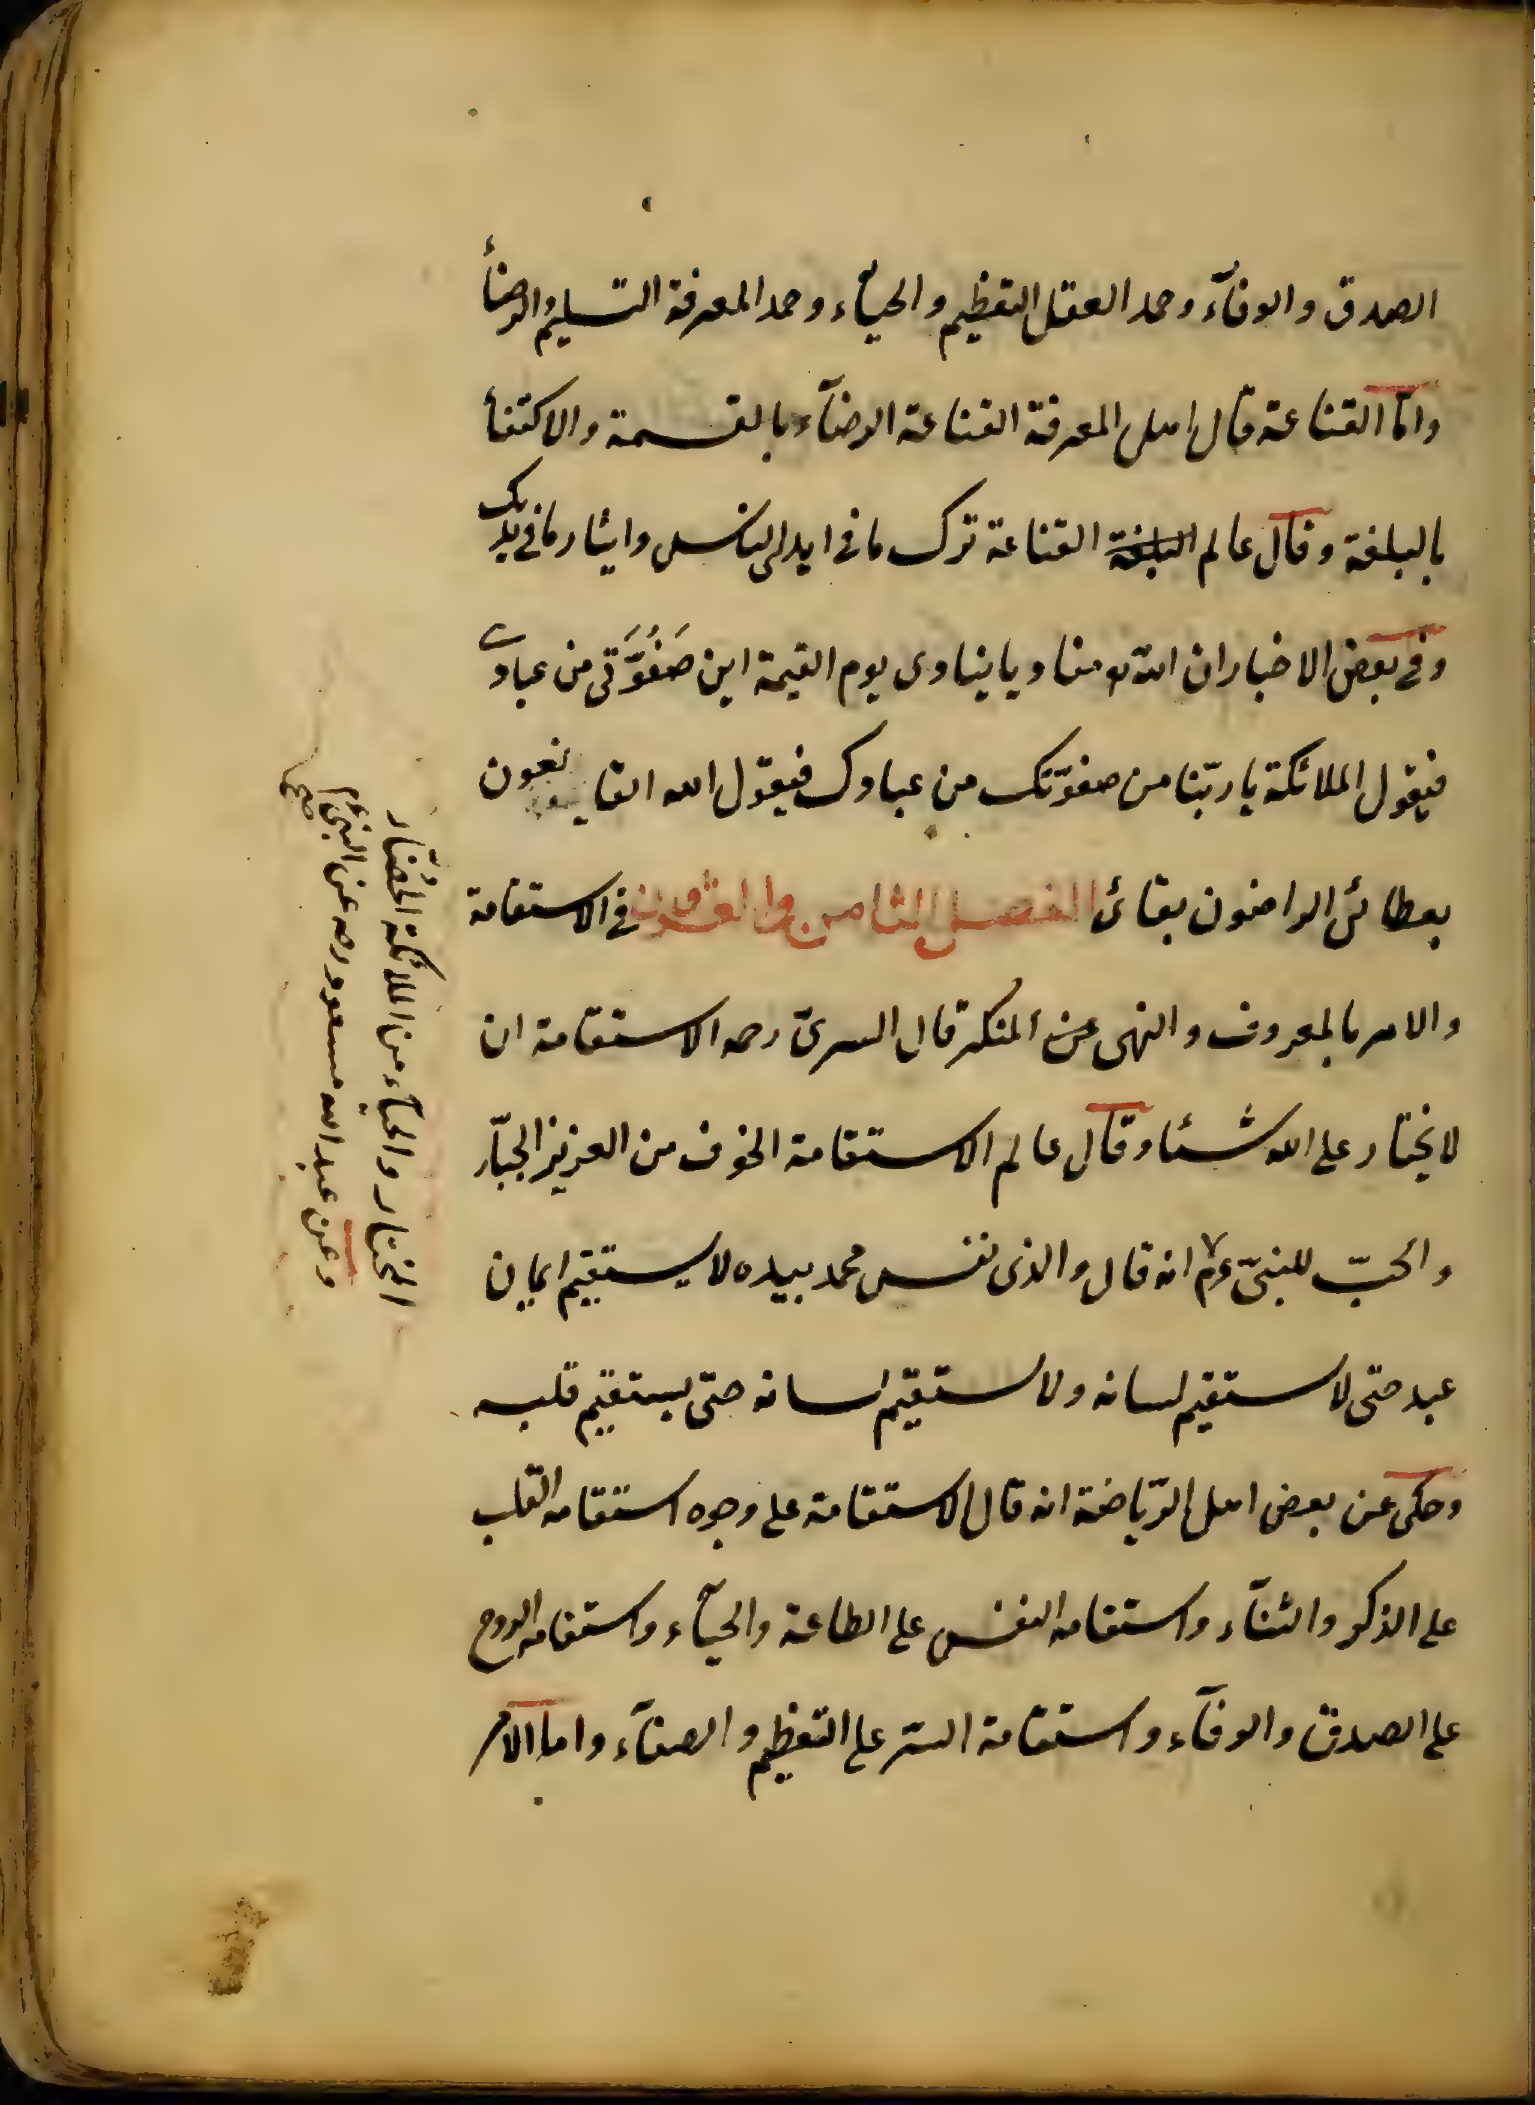 الصدق والوفآء وحد العقل التعظيم والحيآء وحد المعرفة التسليم والرضأ
واما القناعة قال اهل المعرفة القناعة الرضآء بالقسمة والاكتفأ
بالبلغة وقال عالم البلغة القناعة ترك ما فى ايدى الناس وايثار ما فى يديك
وفى بعض الاخبار ان لله مناديا ينادى يوم القيمة اين صَفُوَّتى من عبادى
فيقول الملائكة يا ربّنا من صفوّتك من عبادك فيقول الله القانعون
بعطائى الراضون بقائى الفصل الثامن والعشرون فى الاستقامة
والامر بالمعروف والنهى عن المنكر قال السرىّ رحمه الاستقامة ان
لا يختار على الله شيئا وقال عالم الاستقامة الخوف من العزيز الجبّار
والحبّ للنبىّ عم انه قال والذى نفس محمد بيده لا يستقيم ايمان
عبد حتى لا يستقيم لسانه ولا يستقيم لسانه حتى يستقيم قلبه
وحكى عن بعض اهل الرّياضة انه قال الاستقامة على وجوه استقامه القلب
على الذكر والثنآء واستقامه النفس على الطاعة والحيآء واستقامه الروح
على الصدق والوفآء واستقامة السرّ على التعظيم والصفآء واما الامر
المختار والحيآء من الملائكة الحُضّار
وعن عبد الله مسعود رضه عن النبى عم
صح